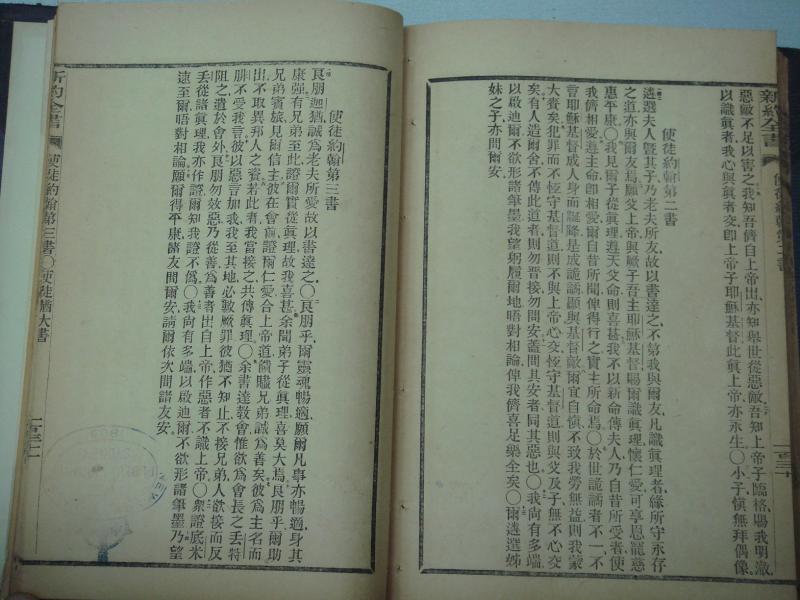 新約全書
惡敵不足以害之我知吾儕自上帝出亦知舉世從惡敵吾知上帝子臨格賜我明澈
以識眞者我心與眞者交卽上帝子耶穌基督此眞上帝亦永生〇小子愼無拜偶像
使徒約翰第二書
遴選夫人曁其子乃老夫所友故以書達之不第我與爾友凡識眞理者緣所守永存
之道亦與爾友焉願父上帝與厥子吾主耶穌基督賜爾識眞理懷仁愛可享恩寵慈
惠平康〇我見爾子從眞理遵天父命則喜甚我不以新命傳夫人乃自昔所受者使
我儕相愛遵主命卽相愛爾自昔所聞俾得行之實主所命焉〇於世詭譎者不一不
言耶穌基督成人身而誕降是成詭譎顯與基督敵爾宜自愼不致我勞無益則我蒙
大賚矣犯罪而不恆守基督道則不與上帝心交恆守基督道則與父及子無不心交
矣有人造爾舍不傳此道者則勿晉接勿問安蓋問其安者同其惡也〇我尙有多端
以啟迪爾不欲形諸筆墨我望躬履爾地晤對相論俾我儕喜足樂全矣〇爾遴選姊
妹之子亦問爾安
使徒約翰第三書
良朋迦猶誠為老夫所愛故以書達之〇良朋乎爾靈魂暢適願爾凡事亦暢適身其
康强有兄弟至此證爾實從眞理故我喜甚余聞弟子從眞理喜莫大焉良朋乎爾助
兄弟賓旅見爾信主彼在會前證爾仁愛合上帝道饋贐兄弟誠為善矣彼為主名而
出不取異邦人之資若此者我當接之共傳眞理〇余書達敎會惟欲為會長之丢特
腓不愛我言彼以惡言加我我至其地必數厥罪彼猶不知止不接兄弟人欲接而反
阻之遣於會外良朋勿效惡乃從善為善者出自上帝作惡者不識上帝〇衆證底米
丢從諸眞理我亦作證爾知我證不僞〇我尙有多端以啟迪爾不欲形諸筆墨乃望
速至爾晤對相論願爾得平康諸友問爾安請爾依次問諸友安
新約全書
使徒約翰第三書〇使徒猶大書